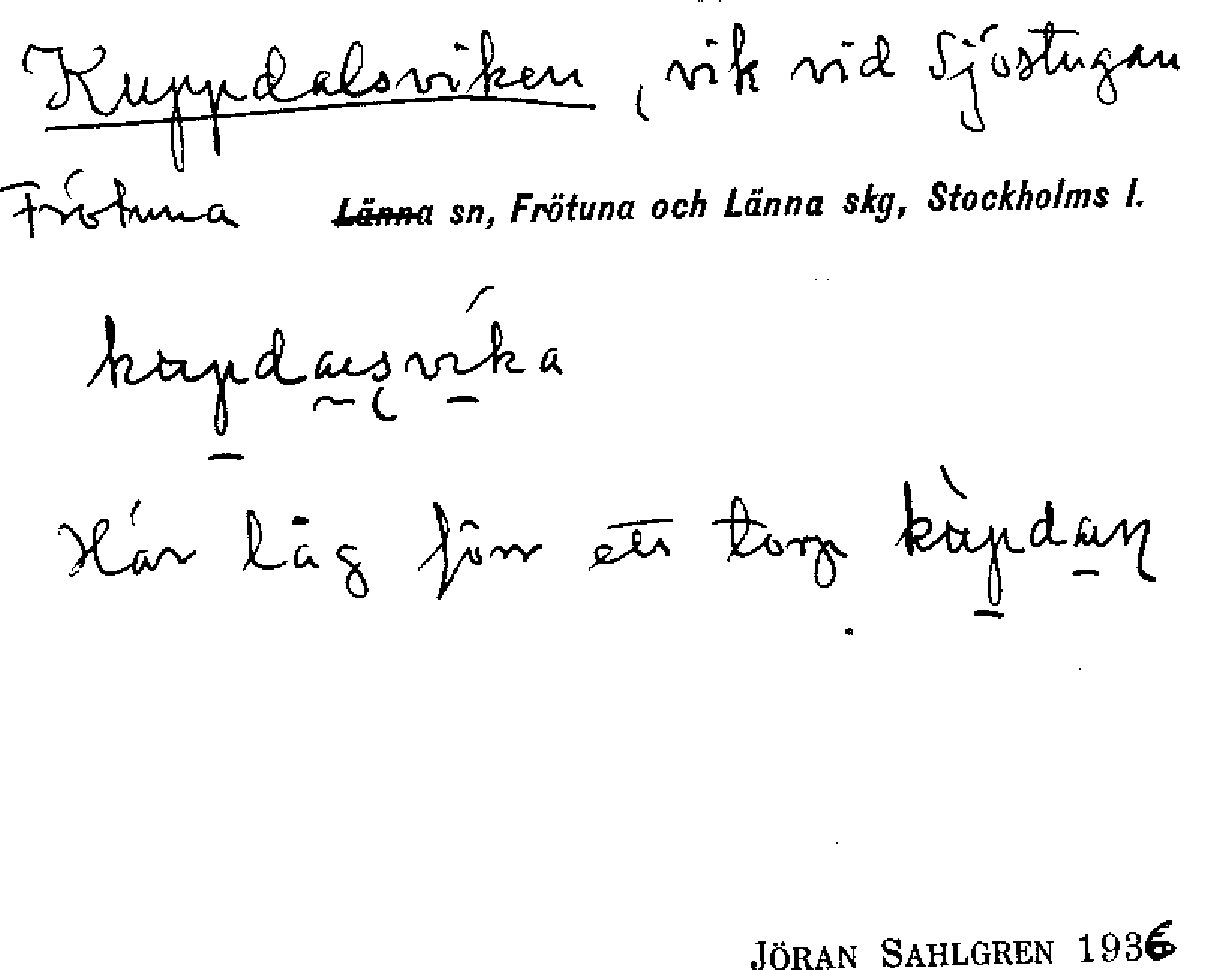 Kuppdalsviken, vik vid Sjöstugan
Frötuna Länna sn, Frötuna och Länna skg, Stockholms l.
Här låg förr ett torp
JÖRAN SAHLGREN 1936